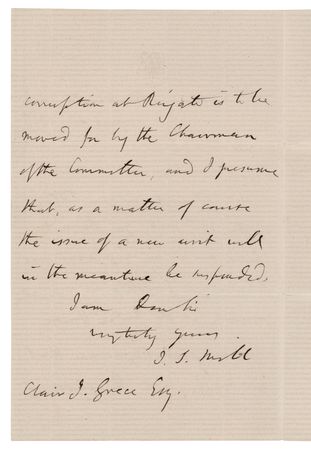 corruption at Reigate is to be
moved for by the Chairman
of the Committee, and I presume
that, as a matter of course
the issue of a new writ will
in the meantime be suspended.
I am Dear Sir
very truly yours
J. S. Mill
Clair J. Grece Esq.